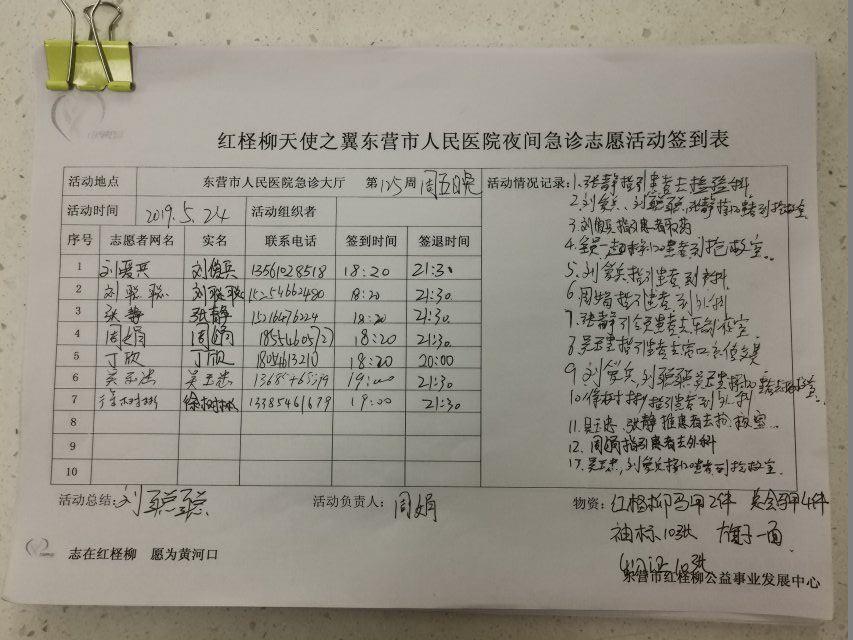 红柽柳天使之翼东营市人民医院夜间急诊志愿活动签到表
活动地点 东营市人民医院急诊大厅 第125周 周五日晚
活动时间 2019.5.24 活动组织者
序号 志愿者网名 实名 联系电话 签到时间 签退时间
1 刘俊兵 13561028518 18:20 21:30
2 刘聪聪 刘聪聪 15254662480 18:20 21:30
3 张静 张静 15216476224 18:20 21:30
4 周娟 周娟 18:20 21:30
5 丁欣 丁欣 18054613210 18:20 20:00
6 吴玉忠 吴玉忠 19:00 21:30
7 徐树彬 徐树彬 13385461679 19:00 21:30
8
9
10
活动情况记录:1.张静指引患者去检验科
2.刘俊兵、刘聪聪、张静接120患者到抢救室
3.刘俊兵指引患者
4. 接120患者到抢救室
5.刘俊兵指引患者到
6.周娟指引患者到外科
7.张静引
8.吴玉忠指引患者去窗口
9.刘俊兵,刘聪聪吴玉忠接120患者去抢救室
10.徐树彬指引患者到外科
11.吴玉忠、张静推患者去抢救室
12.周娟指引患者去外科
13.吴玉忠,刘俊兵接120患者到抢救室
活动总结:刘聪聪 活动负责人:周娟 物资:红柽柳马甲2件 马甲4件
袖标10张 旗子一面
10张
志在红柽柳 愿为黄河口
东营市红柽柳公益事业发展中心